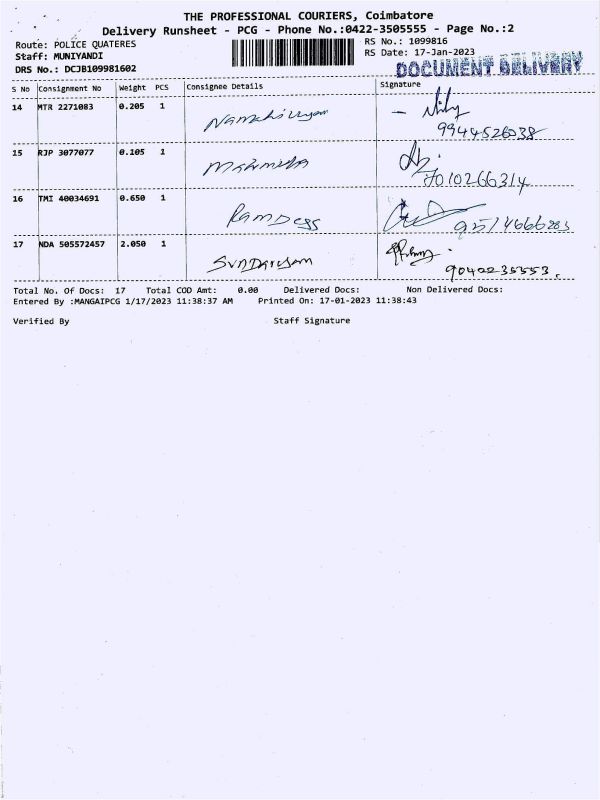 THE PROFESSIONAL COURIERS, Coimbatore
Delivery Runsheet - PCG - Phone No.:0422-3505555 - Page No.:2
Route: POLICE QUATERES
RS No.: 1099816
Staff: MUNIYANDI
RS Date: 17-Jan-2023
DRS No.: DCJB109981602
DOCUMENT DELIVERY
S No Consignment No Weight PCS Consignee Details Signature
14 MTR 2271083 0.205 1
9944526038
15 RJP 3077077 0.105 1
7010266314
16 TMI 40034691 0.650 1 Ramdess
17 NDA 505572457 2.050 1 Sundaresam
9042235553.
Total No. Of Docs: 17 Total COD Amt: 0.00 Delivered Docs: Non Delivered Docs:
Entered By :MANGAIPCG 1/17/2023 11:38:37 AM Printed On: 17-01-2023 11:38:43
Verified By Staff Signature